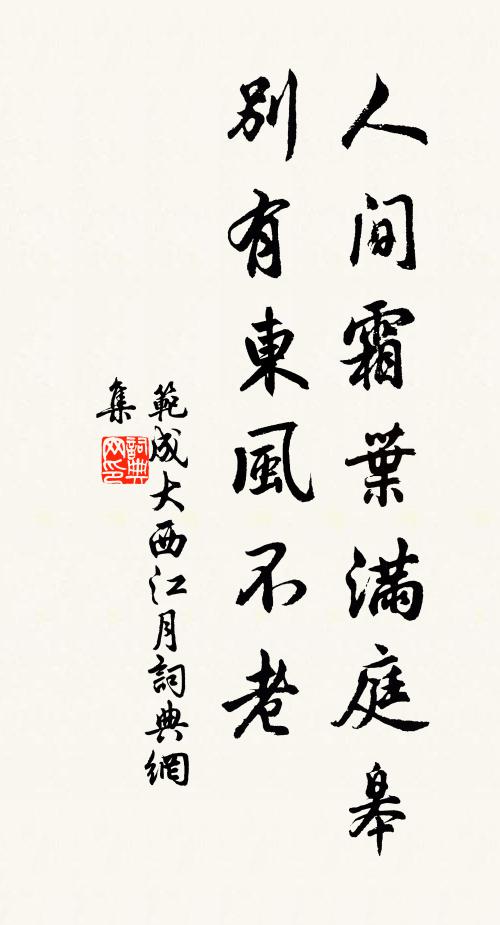 人间霜葉滿庭皋
别有東風不老
範成大西江月詞典網
集
詞典
网印